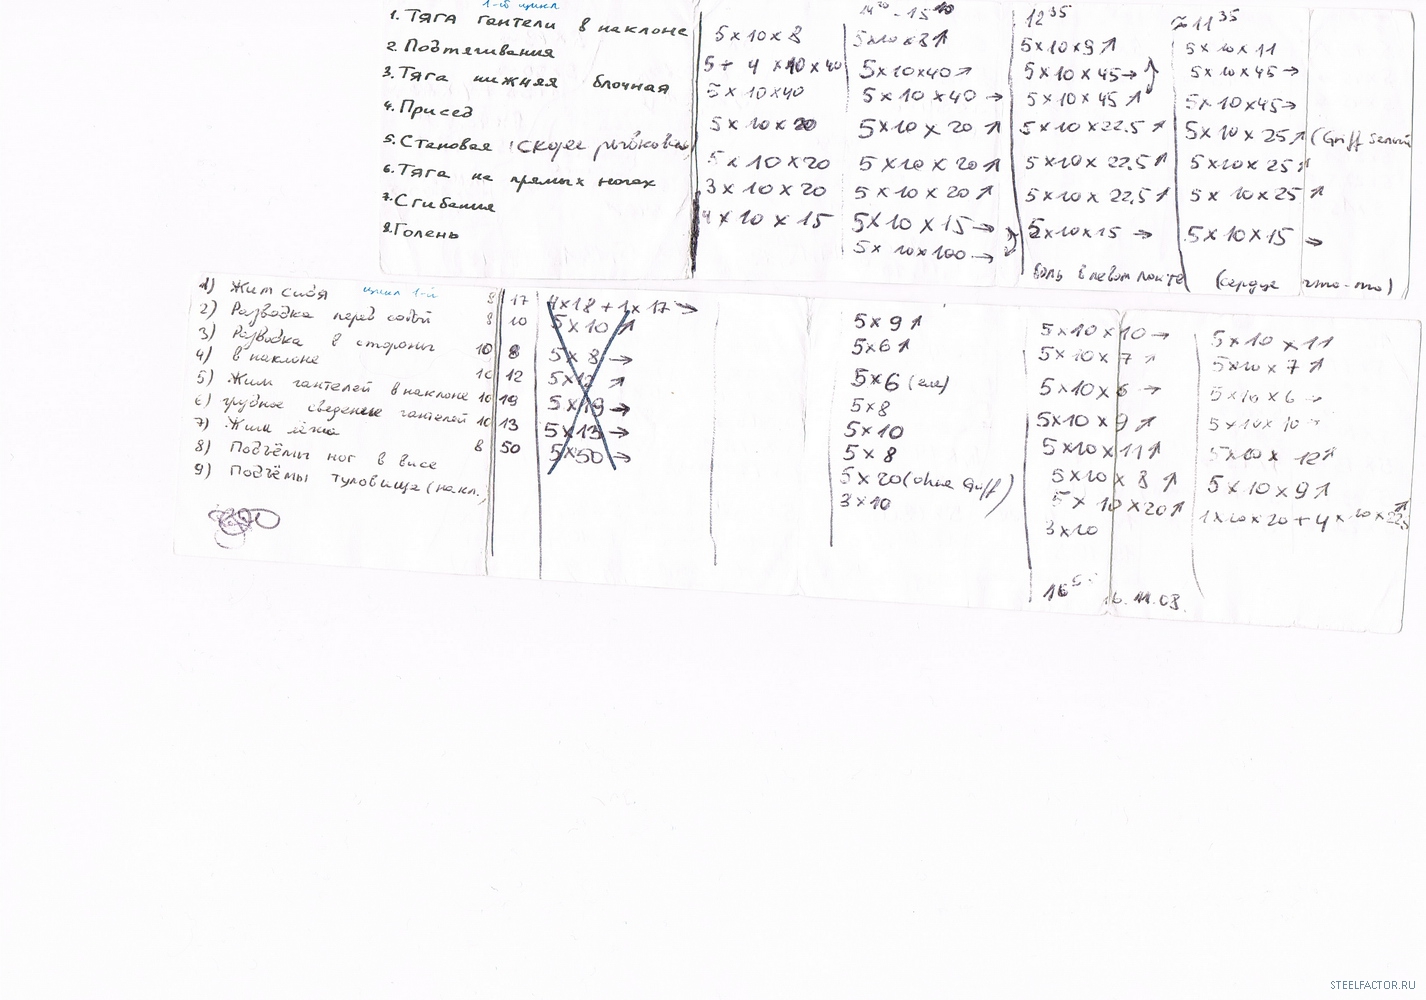 1-й цикл
1. Тяга гантели в наклоне
2. Подтягивания
3. Тяга нижняя блочная
4. Присед
5. Становая (скорее
6. Тяга на прямых ногах
7. Сгибания
8. Голень
5 x 10 x 8
5 x 10 x 40
5 x 10 x 20
5 x 10 x 20
3 x 10 x 20
4 x 10 x 15
15 10
5x10 x 8 ↑
5x10x40 ↗
5 x 10 x 40 →
5x10 x 20 ↑
5 x 10 x 20 ↑
5 x 10 x 20 ↑
5x10 x 15 →
5 x 10x100 →
12 35
5x10 x 9 ↑
5x10 x 45 →
5 x 10 x 45 ↑
5 x 10 x 22.5 ↑
5x10x 22,5 ↑
5 x 10 x 22,5 ↑
5x10x15 →
боль в левом локте
≈ 11 35
5 x 10 x 11
5 x 10 x 45 →
5 x 10x45 →
5 x 10 x 25 ↑ (Griff
5 x 10x 25 ↑
5 x 10 x25 ↑
5x 10x15 →
(сердце что-то)
1) Жим сидя цикл 1-й 8 17
2) Разводка перед собой 8 10
3) Разводка в стороны 10 8
4) в наклоне 10 12
5) Жим гантелей в наклоне 10 19
6) грудное сведение гантелей 10 13
7) Жим лёжа 8 50
8) Подъёмы ног в висе
9) Подъёмы туловища (накл.)
4x18 + 1x 17 →
5 x 10 ↗
5 x 8 →
5x12 ↗
5 x 19 →
5x13 →
5x50 →
5 x 9 ↑
5x6 ↑
5 x 6 (еле)
5 x 8
5 x 10
5 x 8
5 x 20 (ohne Griff)
3 x 10
5x10x10 →
5 x 10x 7 ↗
5 x10 x 6 →
5x10 x 9 ↗
5x10x11 ↑
5x10 x 8 ↑
5 x 10 x20 ↑
3 x10
16.11.08
5x 10 x11
5x10 x 7 ↑
5 x10 x 6 →
5 x10x 10 →
5x10x 12 ↑
5 x 10 x 9 ↑
1x10x 20 + 4 x 10 x 22,5 ↑
STEELFACTOR.RU